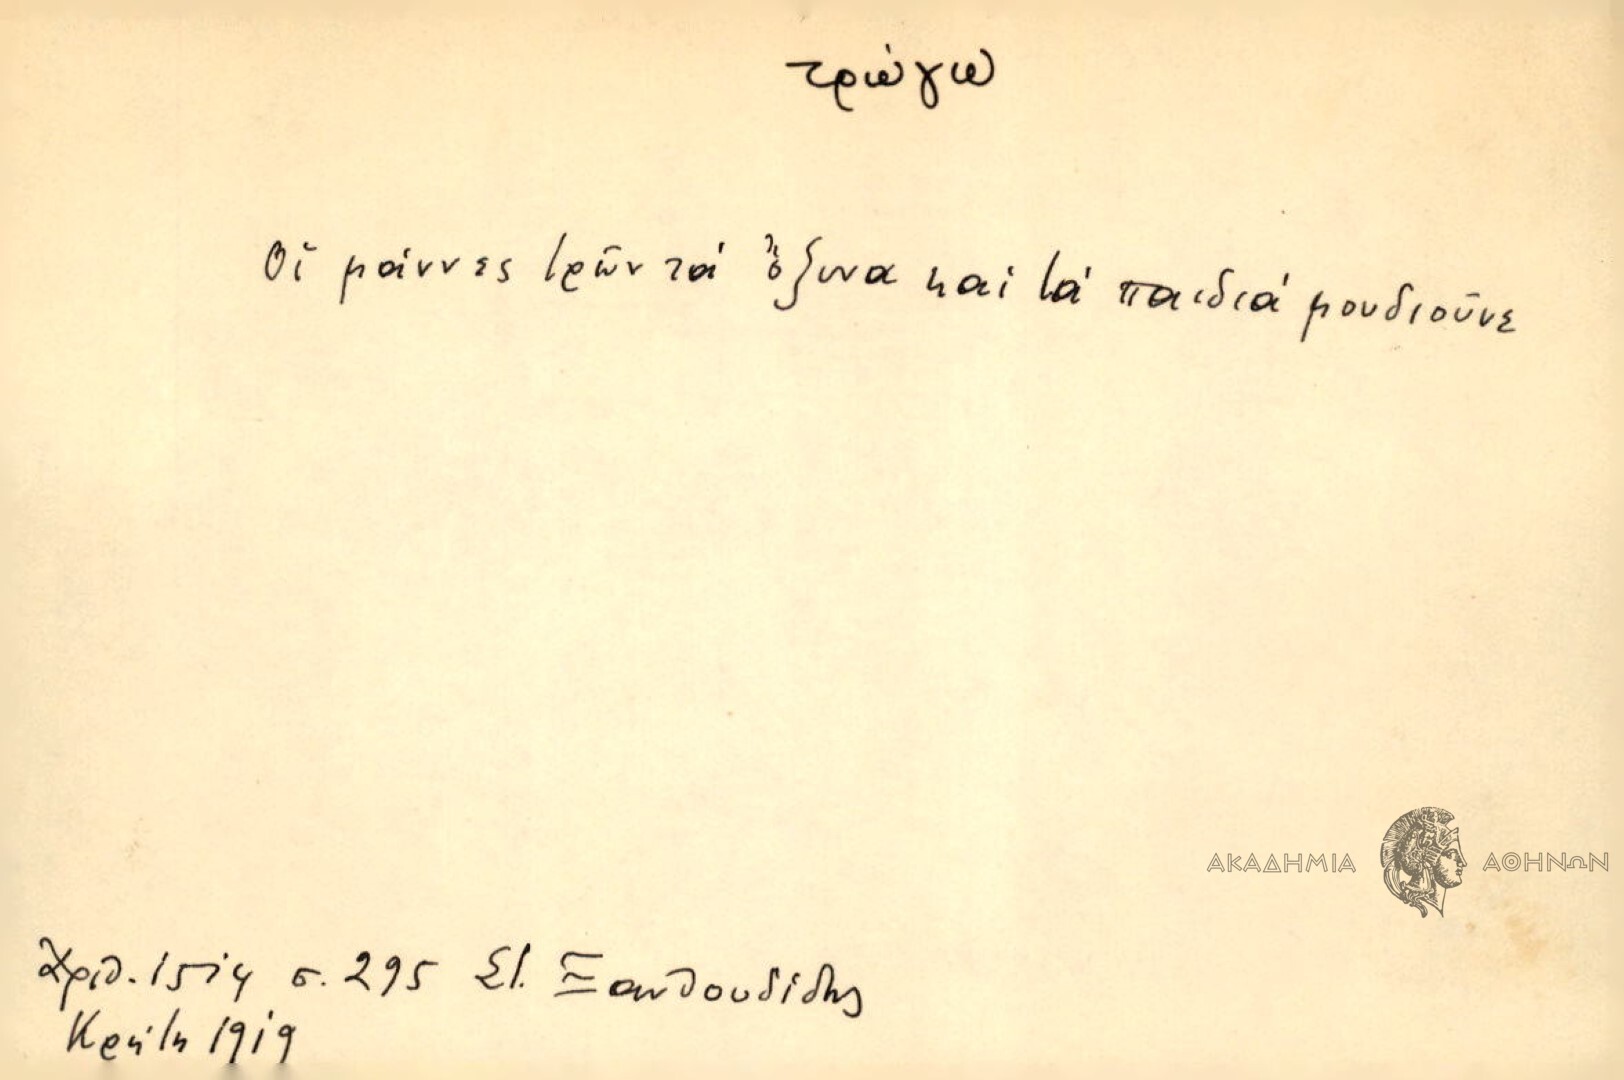 τρώγω
Οἵ μάννες τρῶν τά ὄξυνα καί τά παιδιά μουδιοῦνε
ΑΚΑΔΗΜΙΑ ΑΘΗΝΩΝ
Ἀριθ. 1514 σ. 295 Στ. Ξανθουδίδης
Κρήτη 1919